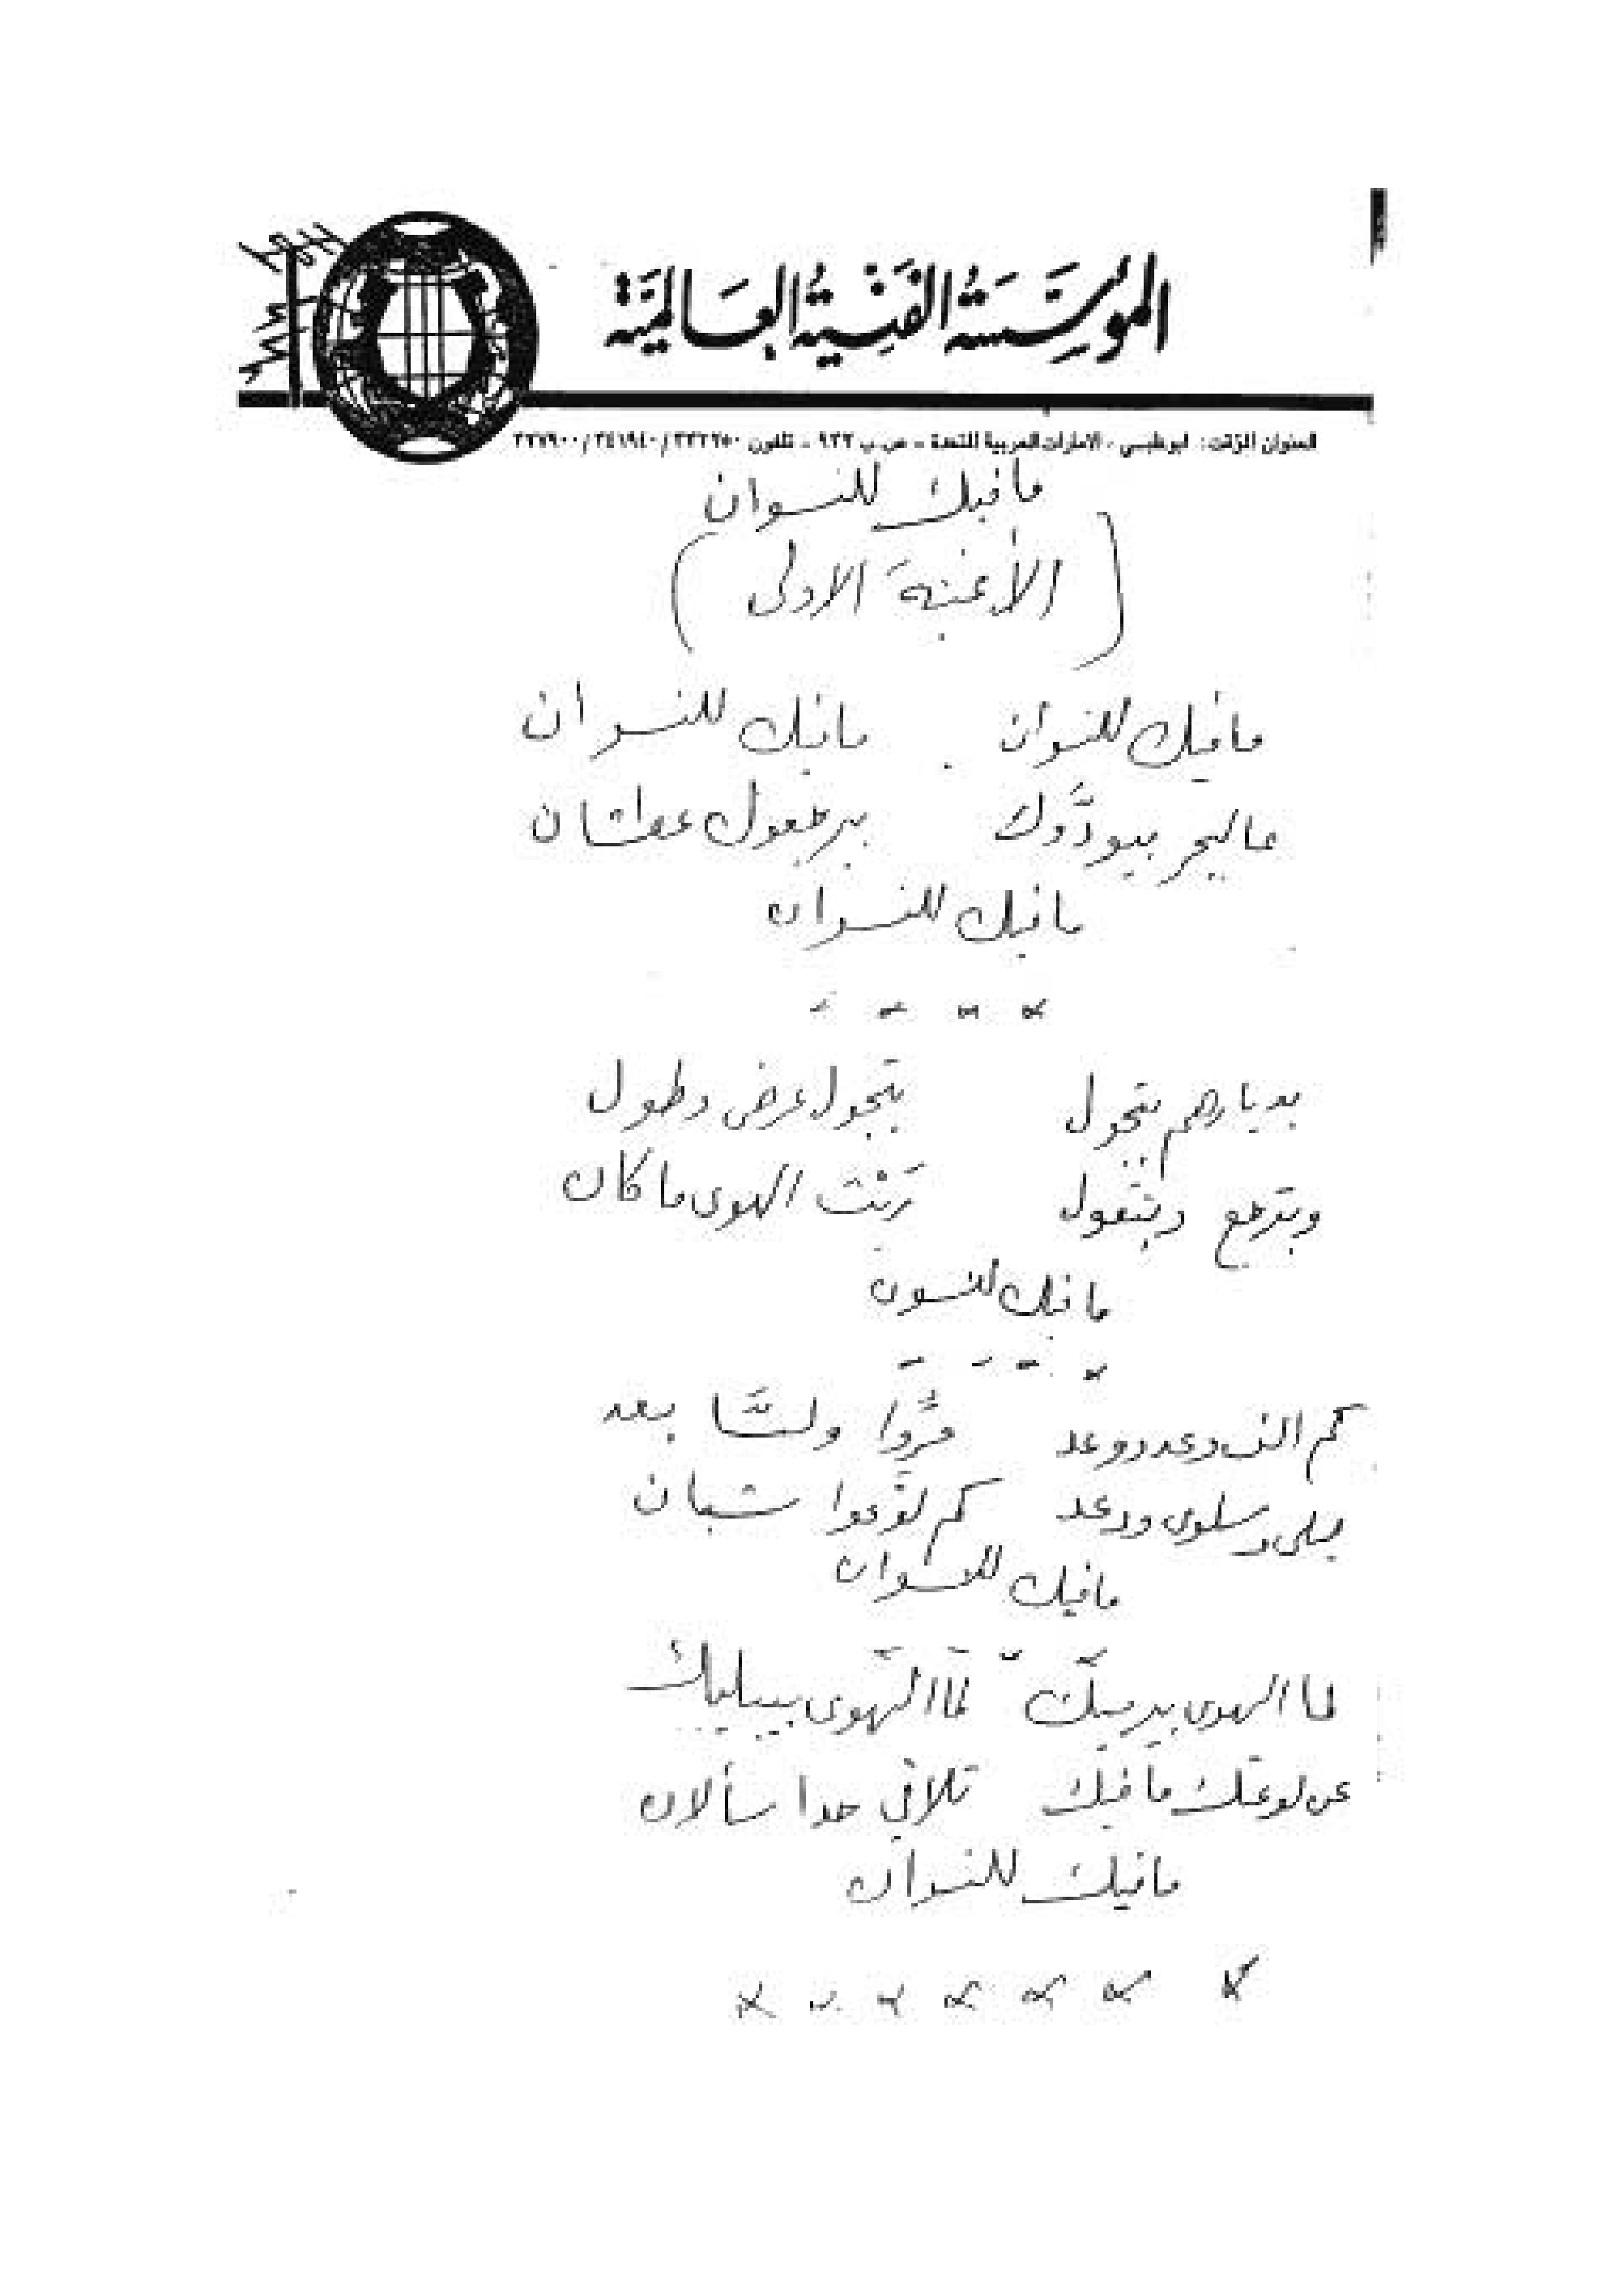 المؤسسة الفنية العالمية
العنوان المؤقت: ابوظبي، الامارات العربية المتحدة - ص.ب ٩٢٢ - تلفون
مافيك للنسوان
(الأغنية الاولى)
مافيك للنسوان مافيك للنسوان
عالبحر بيودّوك بيرجعوك عطشان
مافيك للنسوان
بديارهم بتجول بتجول عرض وطول
وبترجع وبتقول ريْت الهوى ما كان
مافيك للنسون
كم الف وعد ووعد مرّوا ولسَّا بعد
ليلى وسلوى ودعد كم لوّعوا شبان
مافيك للنسوان
لما الهوى بيرميك لما الهوى بيبليك
عن لوعتك مافيك تلاقي حدا سألان
مافيك للنسوان